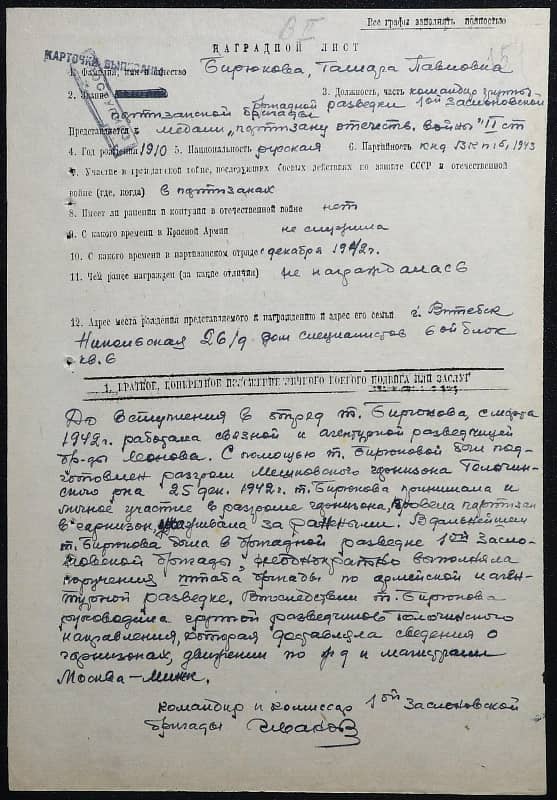 Все графы заполнять полностью
НАГРАДНОЙ ЛИСТ
КАРТОЧКА ВЫПИСАНА
1. Фамилия, имя и отчество Бирюкова, Тамара Павловна
2. Звание 3. Должность, часть командир группы
бригадной разведки 1ой Заслоновской
партизанской бригады
Представляется к медали „партизану отечеств. войны" II ст
4. Год рождения 1910 5. Национальность русская 6. Партийность кнд ВКП/б, 1943
7. Участие в гражданской войне, последующих боевых действиях по защите СССР и отечественной
войне (где, когда) в партизанах
8. Имеет ли ранения и контузии в отечественной войне нет
9. С какого времени в Красной Армии не служила
10. С какого времени в партизанском отряде с декабря 1942 г.
11. Чем ранее награжден (за какие отличия) не награждалась
12. Адрес места рождения представляемого к награждению и адрес его семьи г. Витебск
Никольская 26/9 дом специалистов 6 ой блок
кв. 6
1. КРАТКОЕ, КОНКРЕТНОЕ ИЗЛОЖЕНИЕ ЛИЧНОГО БОЕВОГО ПОДВИГА ИЛИ ЗАСЛУГ
До вступления в отряд т. Бирюкова, с марта
1942 г. работала связной и агентурной разведчицей
бр-ды Леонова. С помощью т. Бирюковой был под-
готовлен разгром гарнизона Толочин-
ского р-на 25 дек. 1942 г. т. Бирюкова принимала и
личное участие в разгроме гарнизона, провела партизан
в гарнизон, ухаживала за ранеными. В дальнейшем
т. Бирюкова была в бригадной разведке 1ой Засло-
новской бригады, неоднократно выполняла
поручения штаба бригады по армейской и аген-
турной разведке. Впоследствии т. Бирюкова
руководила группой разведчиков Толочинского
направления, которая доставляла сведения о
гарнизонах, движении по ж д и магистрали
Москва – Минск.
Командир и комиссар 1ой Заслоновской
бригады